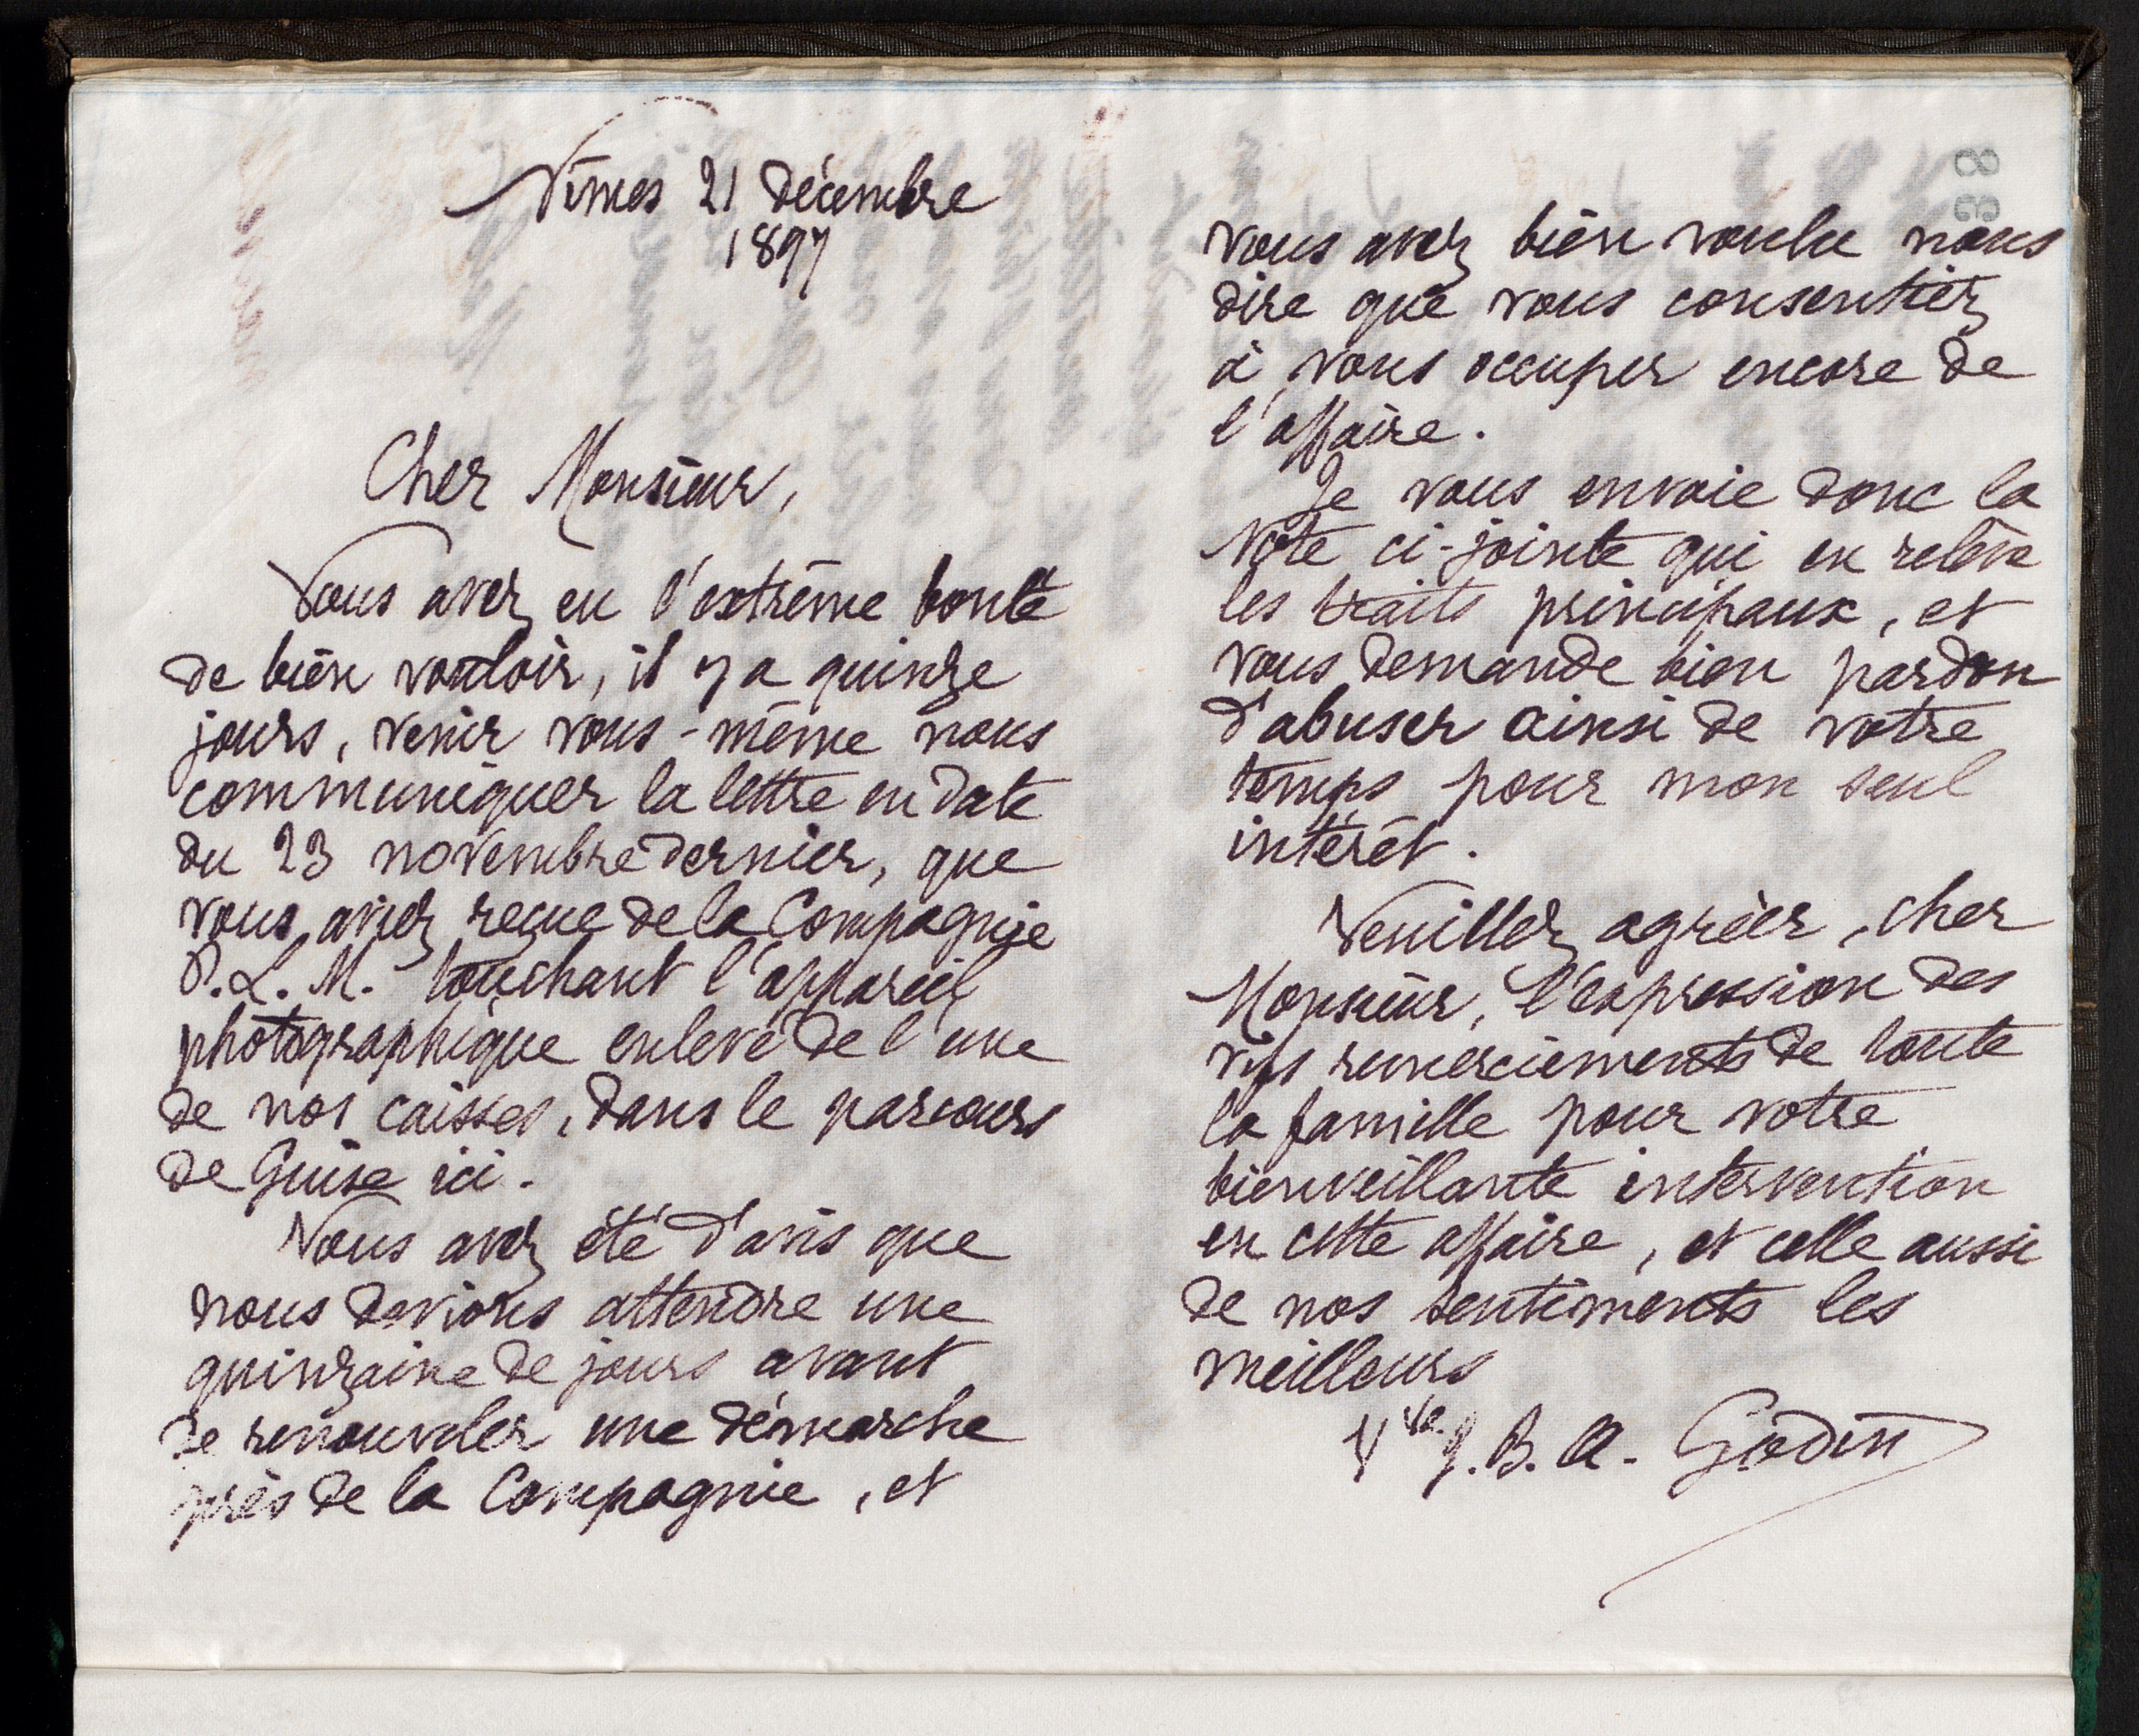 Nîmes 21 décembre
1897
Cher Monsieur,
Vous avez eu l'extrême bonté
de bien vouloir, il y a quinze
jours, venir vous-même nous
communiquer la lettre en date
du 23 novembre dernier, que
vous aviez reçue de la Compagnie
P. L. M. touchant l'appareil
photographique enlevé de l'une
de nos caisses, dans le parcours
de Guise ici.
Vous avez été d'avis que
nous devions attendre une
quinzaine de jours avant
de renouveler une démarche
près de la Compagnie, et
338
vous avez bien voulu nous
dire que vous consentiez
à vous occuper encore de
l'affaire.
Je vous envoie donc la
Note ci-jointe qui en relève
les traits principaux, et
vous demande bien pardon
d'abuser ainsi de votre
temps pour mon seul
intérêt.
Veuillez agréer, cher
Monsieur, l'expression des
vifs remerciements de toute
la famille pour votre
bienveillante intervention
en cette affaire, et celle aussi
de nos sentiments les
meilleurs
Vve J. B. A. Godin